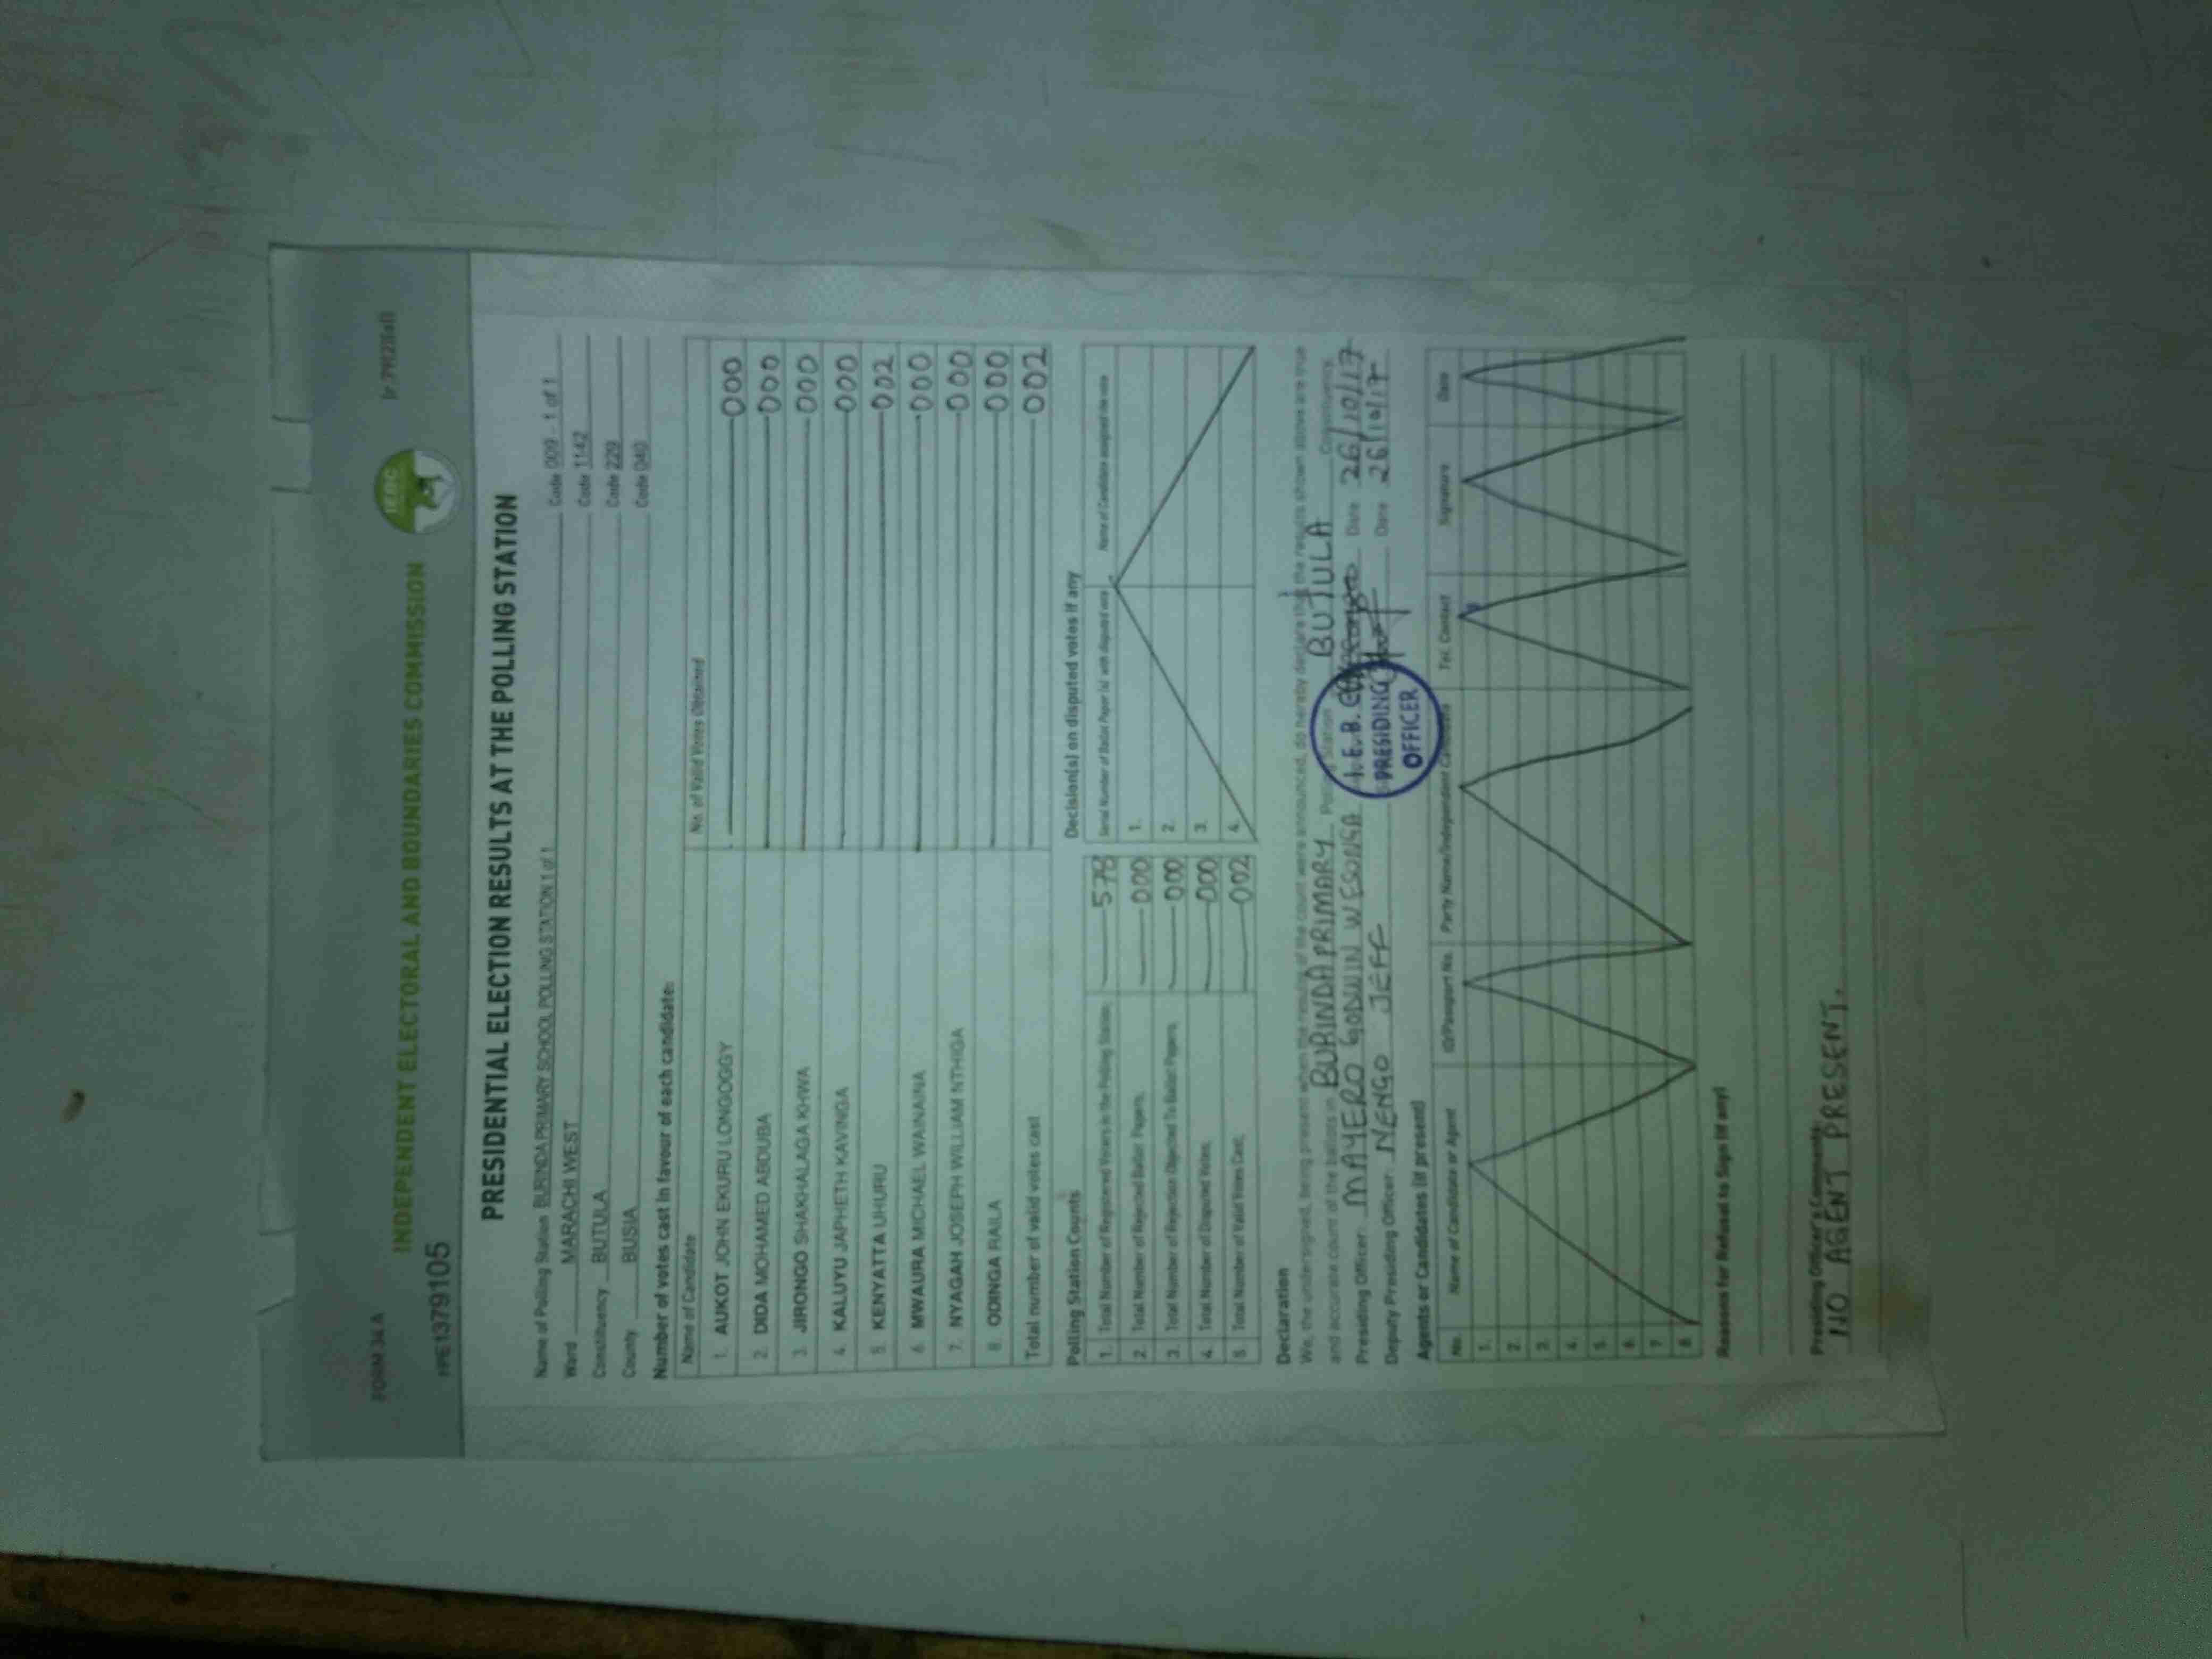 FORM 34A
INDEPENDENT ELECTORAL AND BOUNDARIES COMMISSION
IEBC
#PE1379105
PRESIDENTIAL ELECTION RESULTS AT THE POLLING STATION
Name of Polling Station BURINDA PRIMARY SCHOOL POLLING STATION 1 of 1 Code 009 - 1 of 1
Ward MARACHI WEST Code 1142
Constituency BUTULA Code 229
County BUSIA Code 040
Number of votes cast in favour of each candidate:
Name of Candidate No. of Valid Votes Obtained
1. AUKOT JOHN EKURU LONGOGGY 000
2. DIDA MOHAMED ABDUBA 000
3. JIRONGO SHAKHALAGA KHWA 000
4. KALUYU JAPHETH KAVINGA 000
5. KENYATTA UHURU 002
6. MWAURA MICHAEL WAINAINA 000
7. NYAGAH JOSEPH WILLIAM NTHIGA 000
8. ODINGA RAILA 000
Total number of valid votes cast 002
Polling Station Counts
1. Total Number of Registered Voters in the Polling Station 578
2. Total Number of Rejected Ballot Papers 000
3. Total Number of Rejection Objected To Ballot Papers 000
4. Total Number of Disputed Votes 000
5. Total Number of Valid Votes Cast 002
Decision(s) on disputed votes if any
Serial Number of Ballot Paper (s) with disputed vote Name of Candidate assigned the vote
1.
2.
3.
4.
Declaration
We, the undersigned, being present when the results of the count were announced, do hereby declare that the results shown above are true
and accurate count of the ballots in BURINDA PRIMARY Polling Station BUTULA Constituency.
Presiding Officer: MAYERO GODWIN WESONGA Date 26/10/17
Deputy Presiding Officer: NENGO JEFF Date 26/10/17
I.E.B.C
PRESIDING
OFFICER
Agents or Candidates (if present)
No. Name of Candidate or Agent ID/Passport No. Party Name/Independent Candidate Tel. Contact Signature Date
1.
2.
3.
4.
5.
6.
7.
8.
Reasons for Refusal to Sign (if any)
Presiding Officer's Comments
NO AGENT PRESENT.